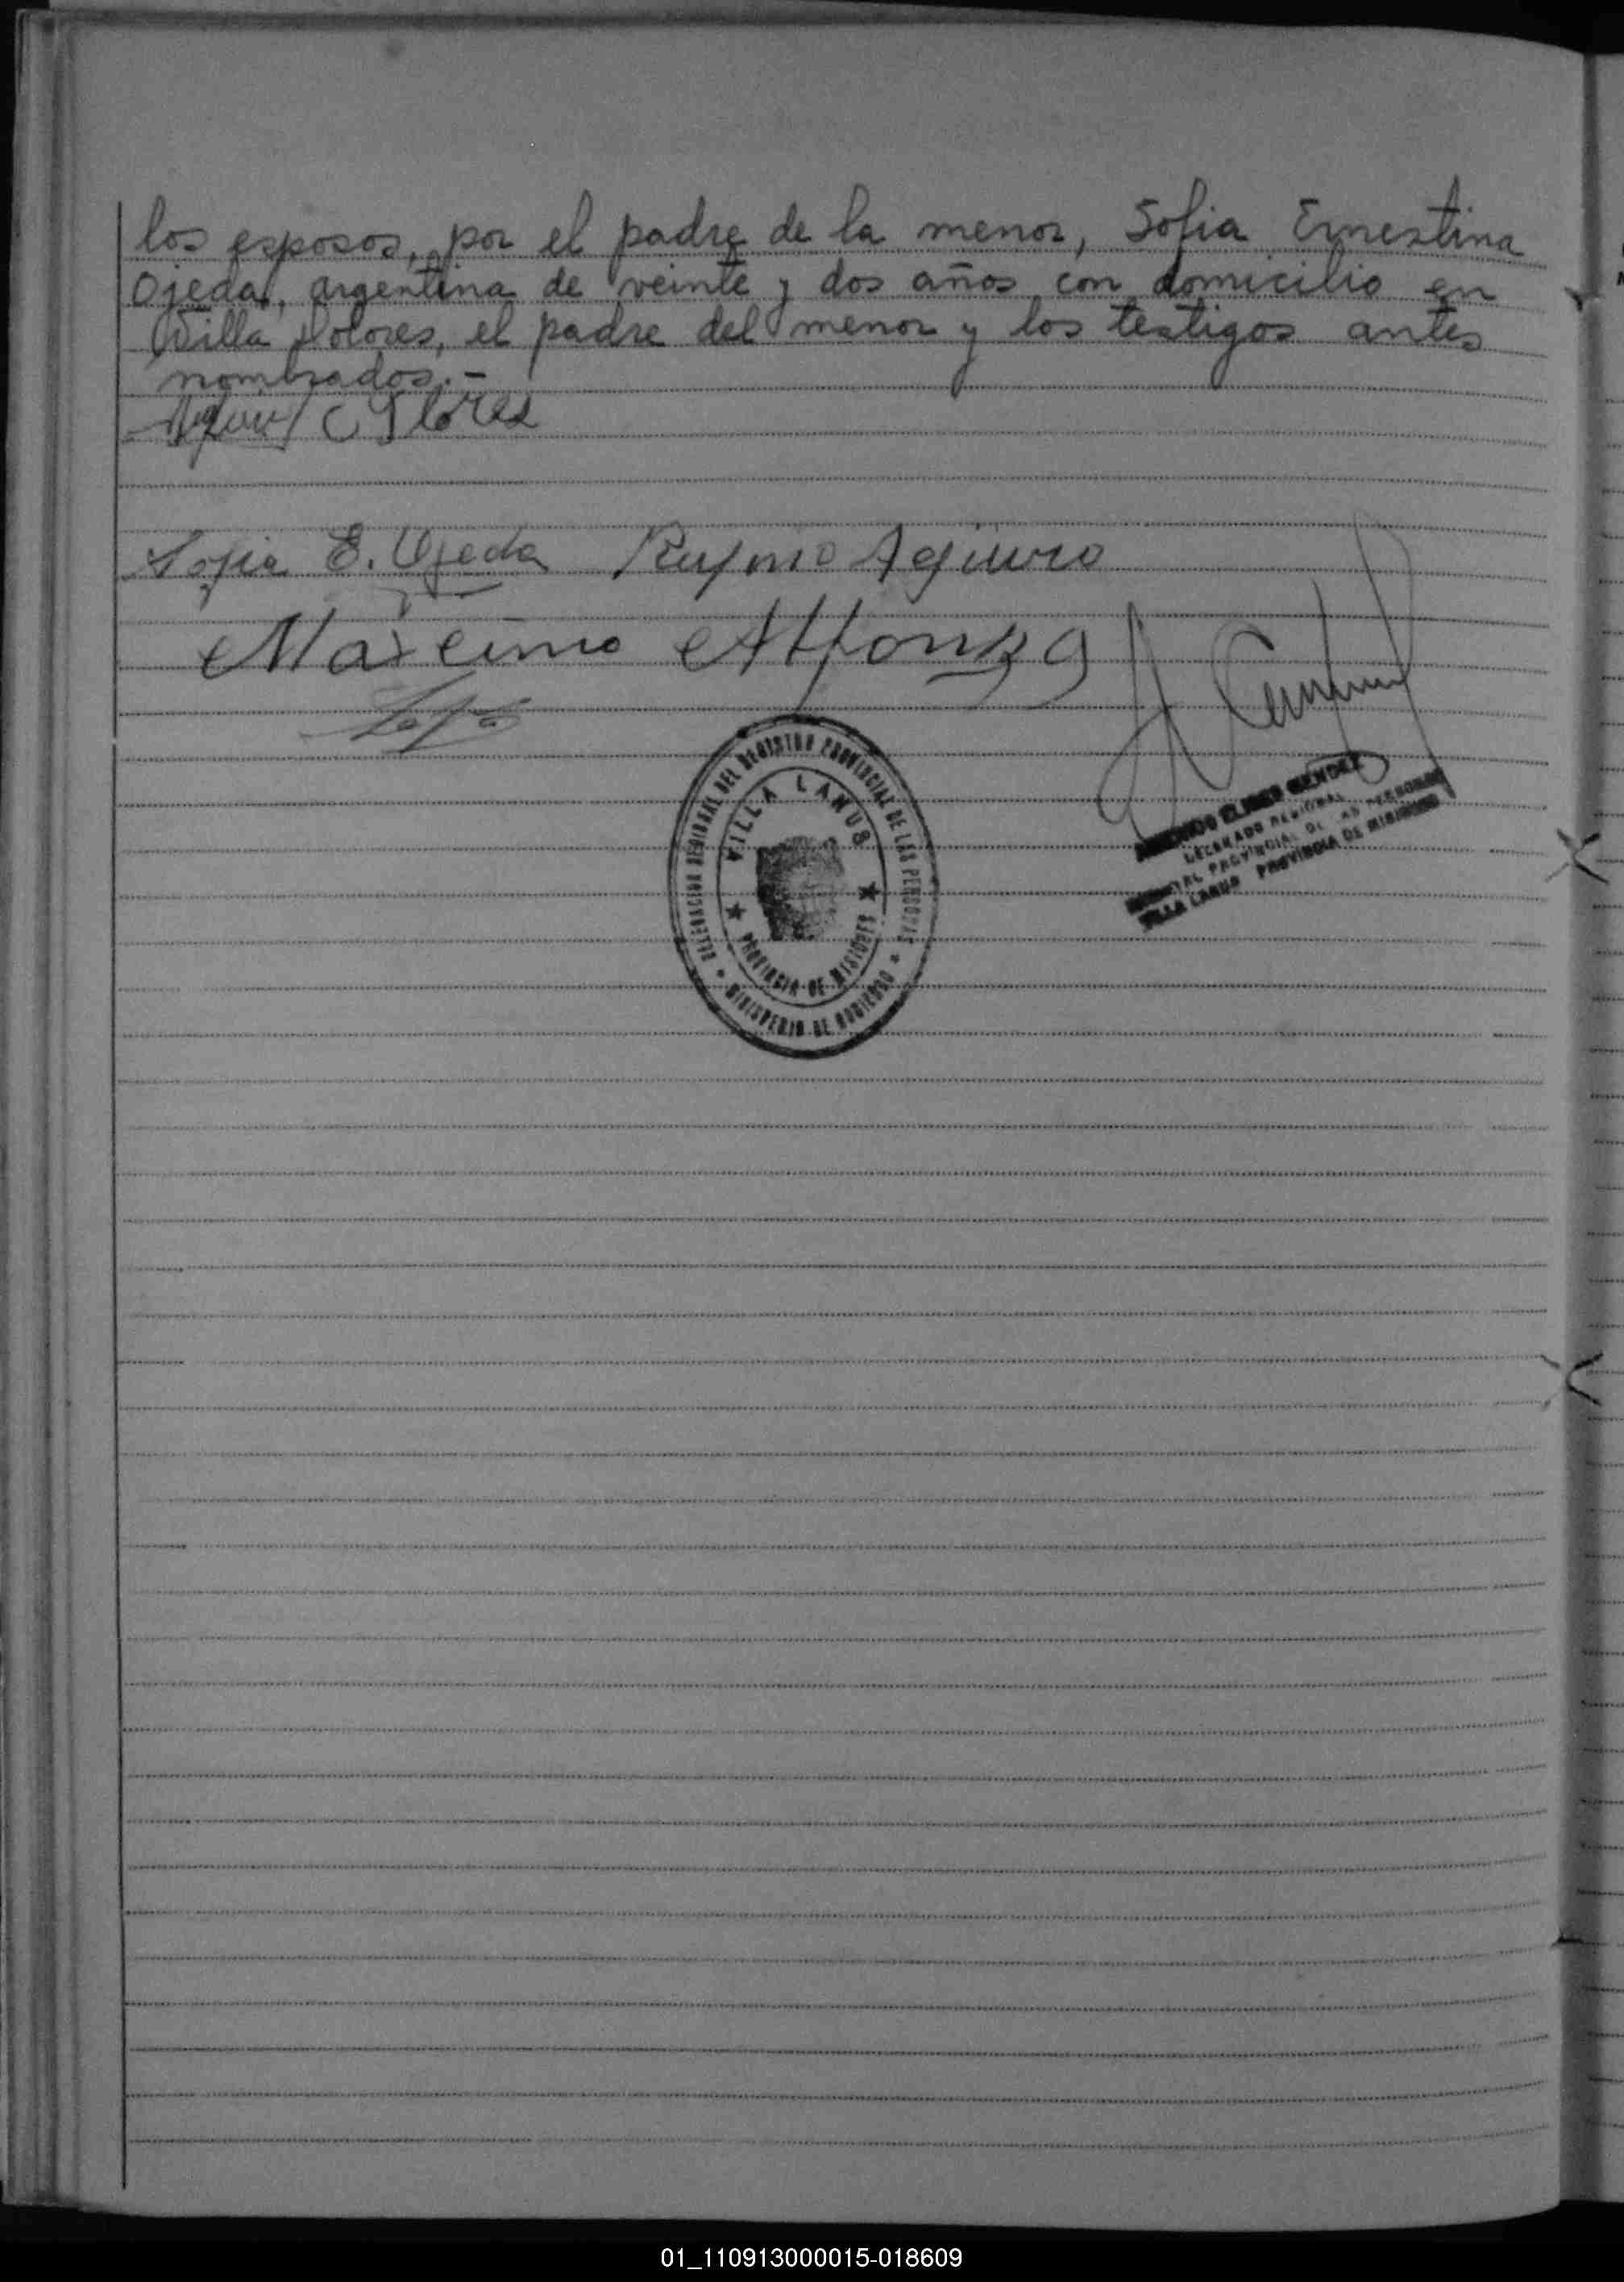 los esposos, por el padre de la menor, Sofia Ernestina
Ojeda, argentina de veinte y dos años con domicilio en
Villa Dolores, el padre del menor y los testigos antes
nombrados.-
C Flores
Sofia E. Ojeda Rufino Aguirre
Maximo Alfonzo
DELEGACION REGIONAL DEL REGISTRO PROVINCIAL DE LAS PERSONAS
VILLA LANUS
PROVINCIA DE MISIONES
MINISTERIO DE GOBIERNO
MENDEZ
DELEGADO REGIONAL
PROVINCIAL DE LAS PERSONAS
VILLA LANUS PROVINCIA DE MISIONES
01_110913000015-018609